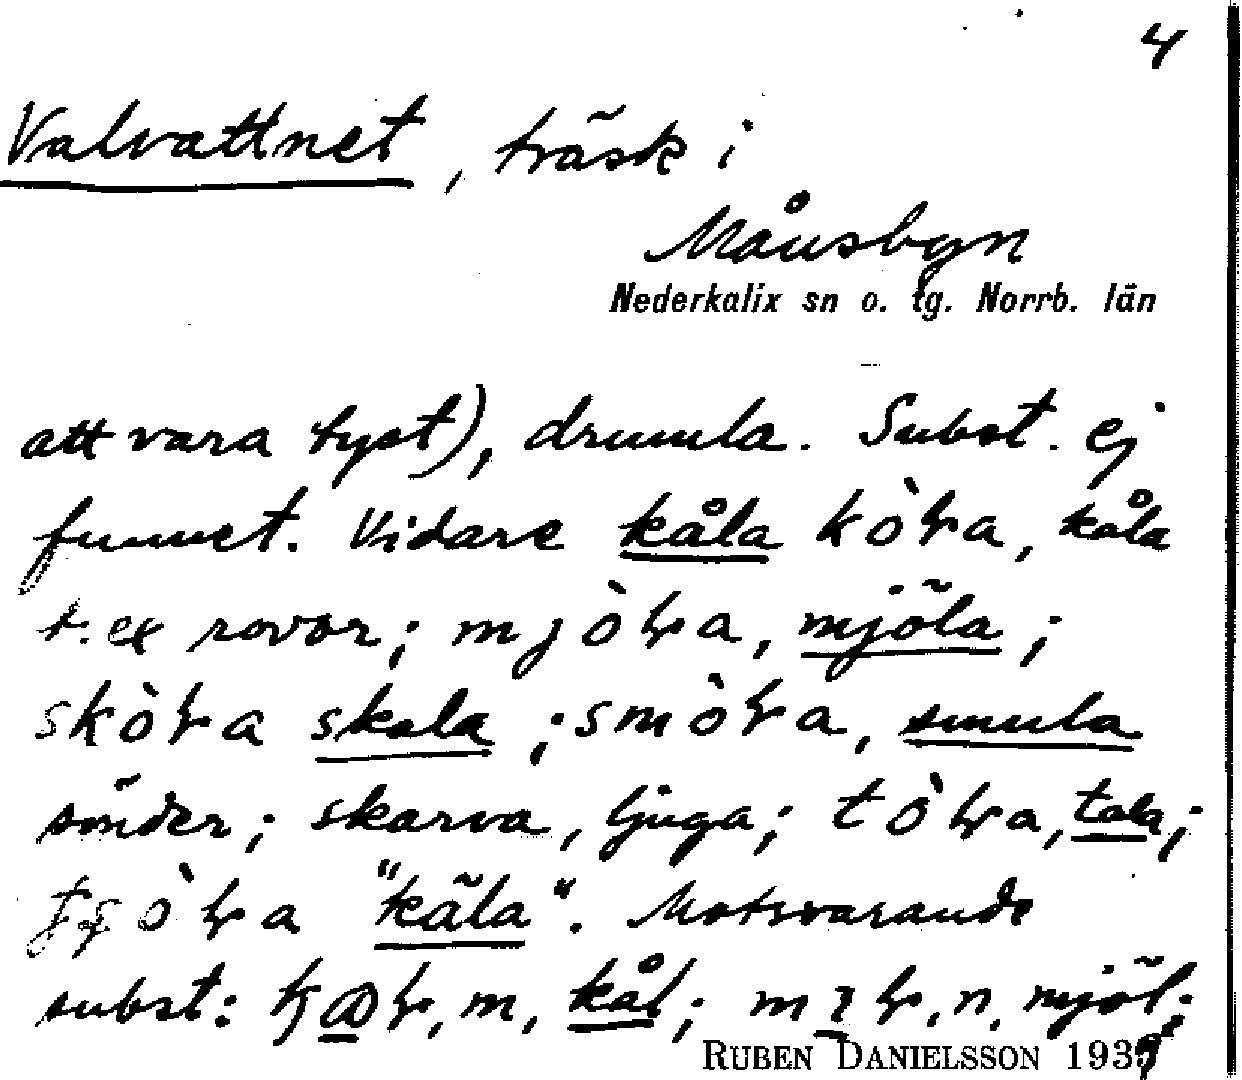 4
Valvattnet, träsk i
Månsbyn
Nederkalix sn o. tg. Norrb. län
att vara tyst), drumla. Subst. ej
funnet. Vidare kåla kòła, kåla
t.ex rovor; mjòła, mjöla;
skòła skala; smòła, smula
sönder; skarva, ljuga; tòła, tala;
òła "käla". Motsvarande
subst: m, kål; n, mjöl;
RUBEN DANIELSSON 1939